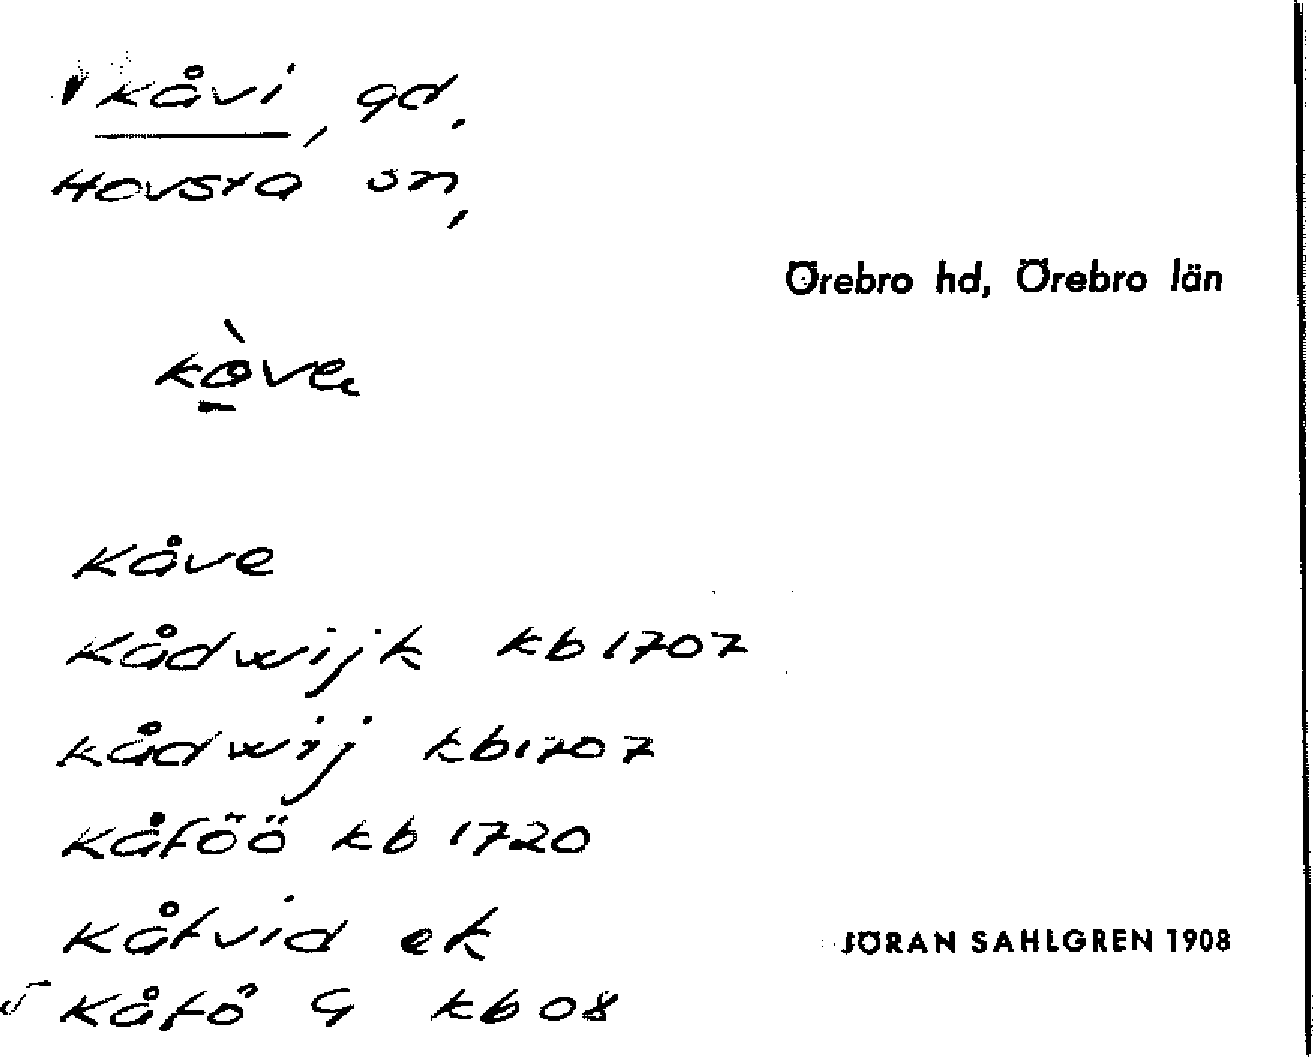 Kåvi, gd.
Hovsta sn,
Örebro hd, Örebro län
kòve
Kåve
Kådwijk kb 1707
Kådwij kb 1707
Kåföö kb 1720
Kåfvid ek
Kåfö G kb 08
JÖRAN SAHLGREN 1908